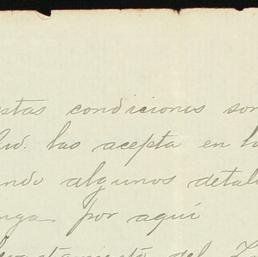 estas condiciones son
Ud. las acepta en la
ando algunos detal
nga por aquí
del